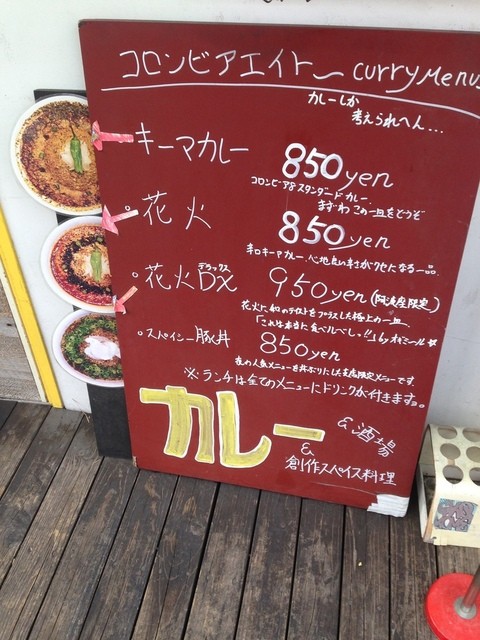 コロンビアエイト〜 curry Menus
カレーしか
考えられへん…
キーマカレー 850yen
コロンビア8スタンダードカレー。
まずわこの一皿をどうぞ
花火 850yen
辛口キーマカレー。心地良い辛さがクセになる一品。
花火DX デラックス 950yen (阿波座限定)
花火に和のテイストをプラスした極上の一皿。
「これは本当に食べルべしっ!!」by オオミール
スパイシー豚丼 850yen
夜の人気メニューを丼ぶりにした支店限定メニューです。
※ランチは全てのメニューにドリンクが付きます。
カレー
& 酒場
&
創作スペイス料理